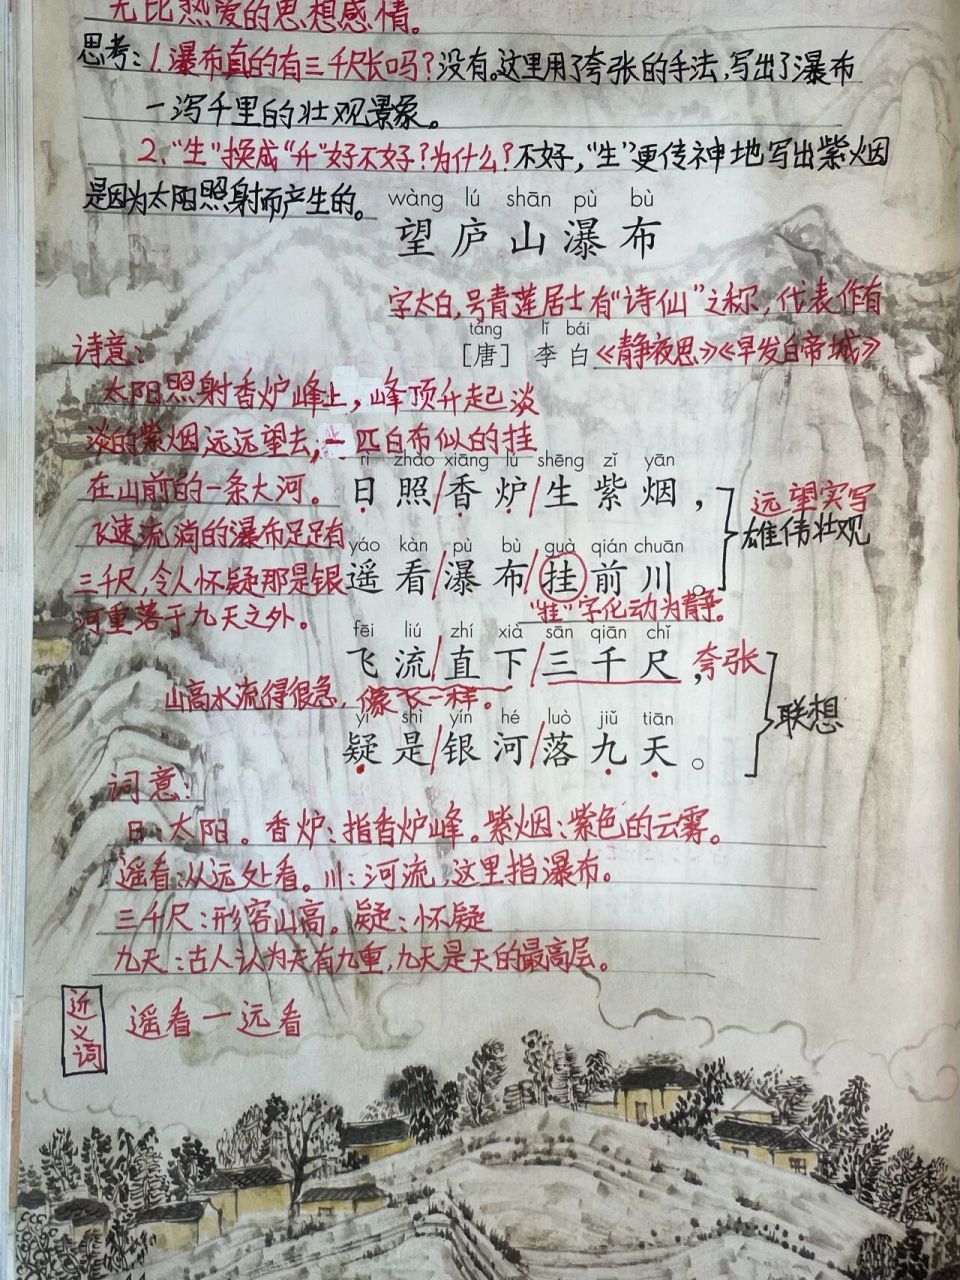 无比热爱的思想感情。
思考：1.瀑布真的有三千尺长吗？没有。这里用了夸张的手法，写出了瀑布
一泻千里的壮观景象。
2、“生”换成“升”好不好？为什么？不好，“生”更传神地写出紫烟
是因为太阳照射而产生的。
wàng lú shān pù bù
望庐山瀑布
字太白，号青莲居士有“诗仙”之称，代表作有
táng lǐ bái
［唐］李白《静夜思》《早发白帝城》
诗意：
太阳照射香炉峰上，峰顶升起淡
淡的紫烟远远望去，一匹白布似的挂
在山前的一条大河。
飞速流淌的瀑布足足有
三千尺，令人怀疑那是银
河重落于九天之外。
rì zhào xiāng lú shēng zǐ yān
日照/香炉/生紫烟，
远望实写
雄伟壮观
yáo kàn pù bù guà qián chuān
遥看/瀑布/挂前川。
“挂”字化动为静。
fēi liú zhí xià sān qiān chǐ
飞流/直下/三千尺，夸张
山高水流得很急，像飞一样。
联想
yí shì yín hé luò jiǔ tiān
疑是/银河/落九天。
词意：
日：太阳。香炉：指香炉峰。紫烟：紫色的云雾。
遥看：从远处看。川：河流，这里指瀑布。
三千尺：形容山高。疑：怀疑
九天：古人认为天有九重，九天是天的最高层。
近义词
遥看一远看